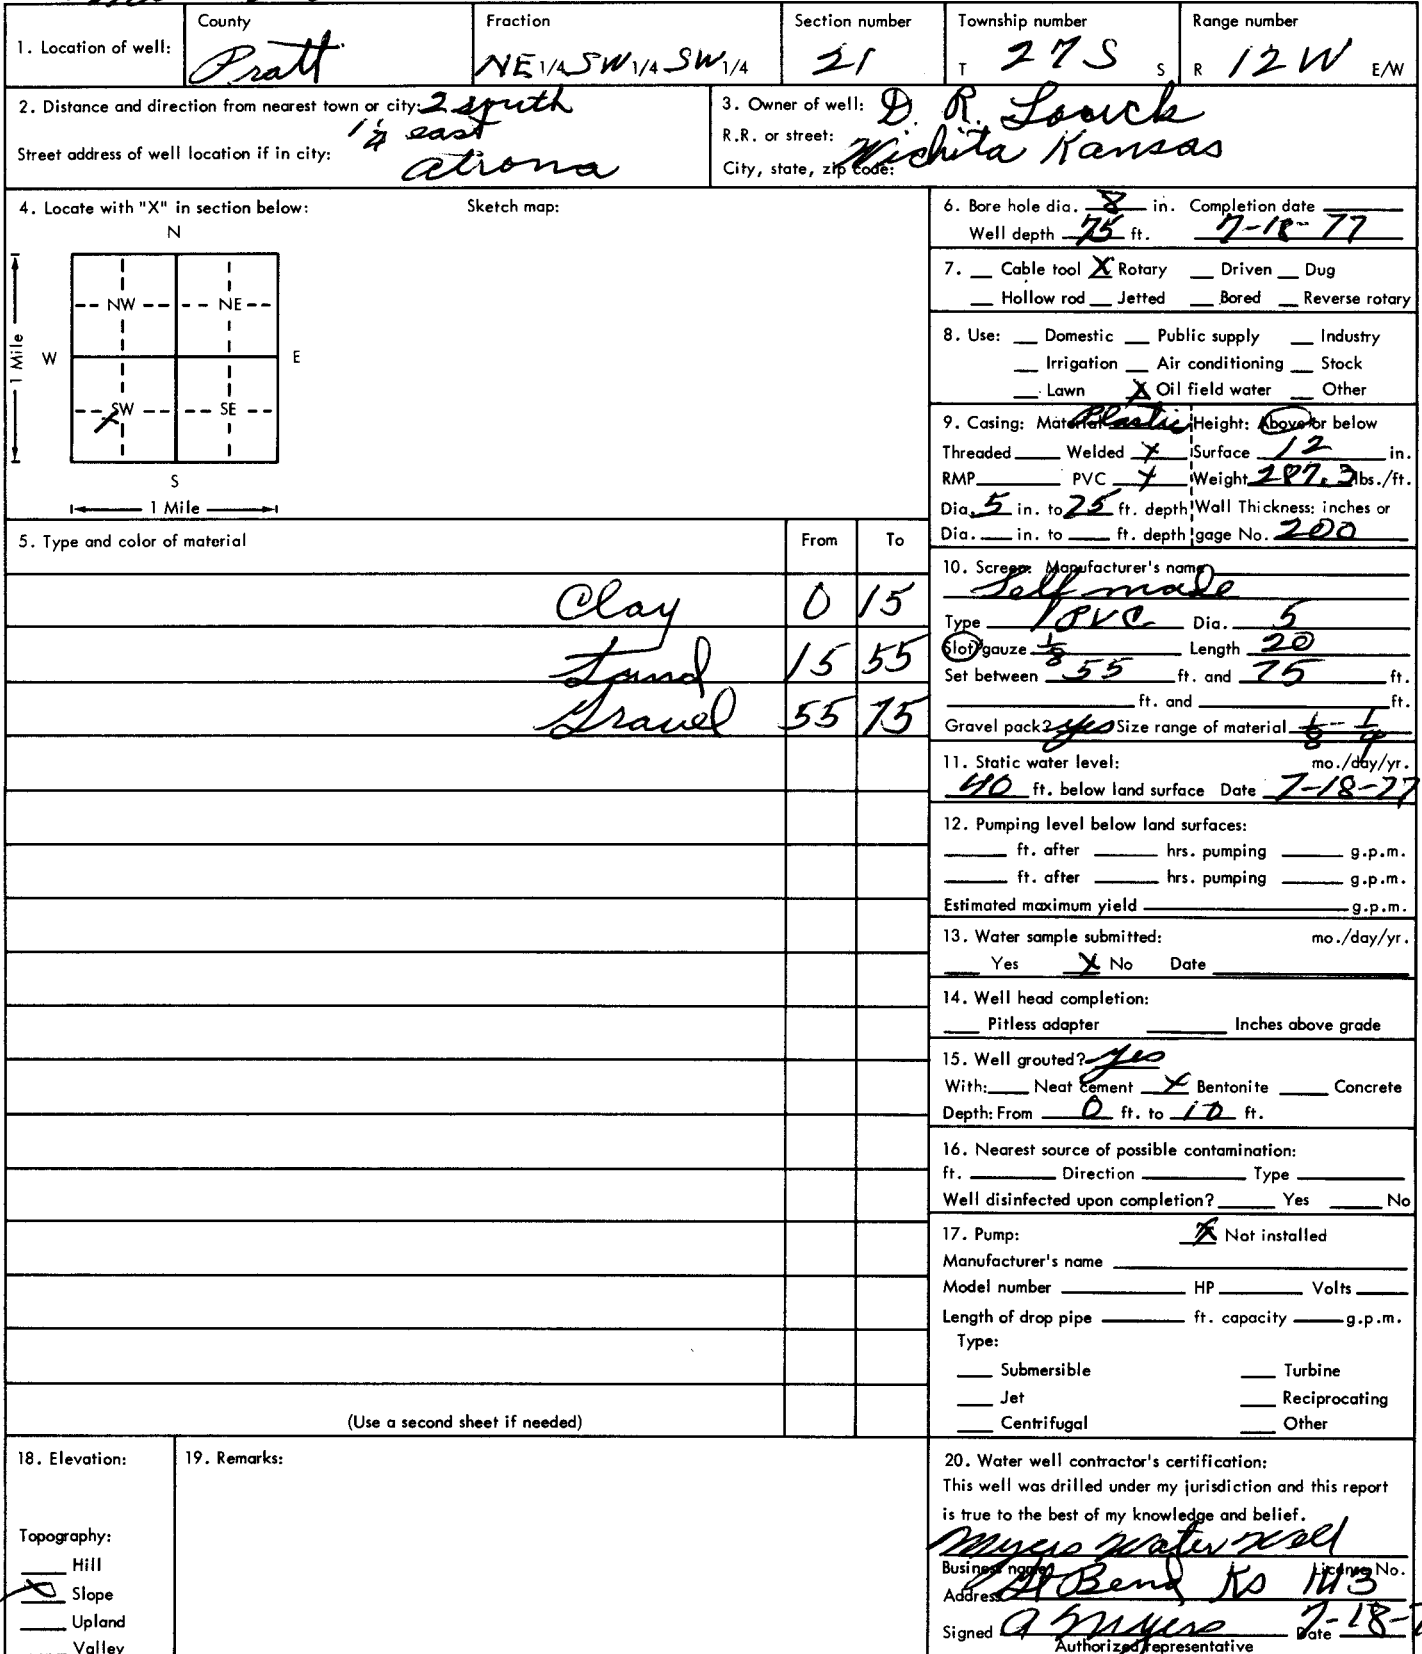 1. Location of well: County Pratt Fraction NE 1/4 SW 1/4 SW 1/4 Section number 21 Township number T 27 S S Range number R 12 W E/W
2. Distance and direction from nearest town or city: 2 south
1 1/4 east
Street address of well location if in city: atrona
3. Owner of well: D. R. Louck
R.R. or street:
City, state, zip code: Wichita Kansas
4. Locate with "X" in section below: Sketch map:
N
NW NE
W E
1 Mile
SW SE
S
1 Mile
5. Type and color of material From To
Clay 0 15
Sand 15 55
Gravel 55 75
(Use a second sheet if needed)
6. Bore hole dia. 8 in. Completion date
Well depth 75 ft. 7-18-77
7. __ Cable tool X Rotary __ Driven __ Dug
__ Hollow rod __ Jetted __ Bored __ Reverse rotary
8. Use: __ Domestic __ Public supply __ Industry
__ Irrigation __ Air conditioning __ Stock
__ Lawn X Oil field water __ Other
9. Casing: Material Plastic Height: Above or below
Threaded ___ Welded X Surface 12 in.
RMP ___ PVC X Weight 287.3 lbs./ft.
Dia. 5 in. to 25 ft. depth Wall Thickness: inches or
Dia. ___ in. to ___ ft. depth gage No. 200
10. Screen: Manufacturer's name
Self made
Type PVC Dia. 5
Slot/gauze 1/8 Length 20
Set between 55 ft. and 75 ft.
___ ft. and ___ ft.
Gravel pack? yes Size range of material 1/8 - 1/4
11. Static water level: mo./day/yr.
40 ft. below land surface Date 7-18-77
12. Pumping level below land surfaces:
___ ft. after ___ hrs. pumping ___ g.p.m.
___ ft. after ___ hrs. pumping ___ g.p.m.
Estimated maximum yield ___ g.p.m.
13. Water sample submitted: mo./day/yr.
__ Yes X No Date ___
14. Well head completion:
__ Pitless adapter ___ Inches above grade
15. Well grouted? yes
With: __ Neat cement X Bentonite __ Concrete
Depth: From 0 ft. to 10 ft.
16. Nearest source of possible contamination:
ft. ___ Direction ___ Type ___
Well disinfected upon completion? ___ Yes ___ No
17. Pump: X Not installed
Manufacturer's name ___
Model number ___ HP ___ Volts ___
Length of drop pipe ___ ft. capacity ___ g.p.m.
Type:
__ Submersible __ Turbine
__ Jet __ Reciprocating
__ Centrifugal __ Other
18. Elevation:
Topography:
__ Hill
X Slope
__ Upland
__ Valley
19. Remarks:
20. Water well contractor's certification:
This well was drilled under my jurisdiction and this report
is true to the best of my knowledge and belief.
Myers Water Well
Business name License No.
Address Gt Bend Ks 143
Signed A Myers Date 7-18-
Authorized representative